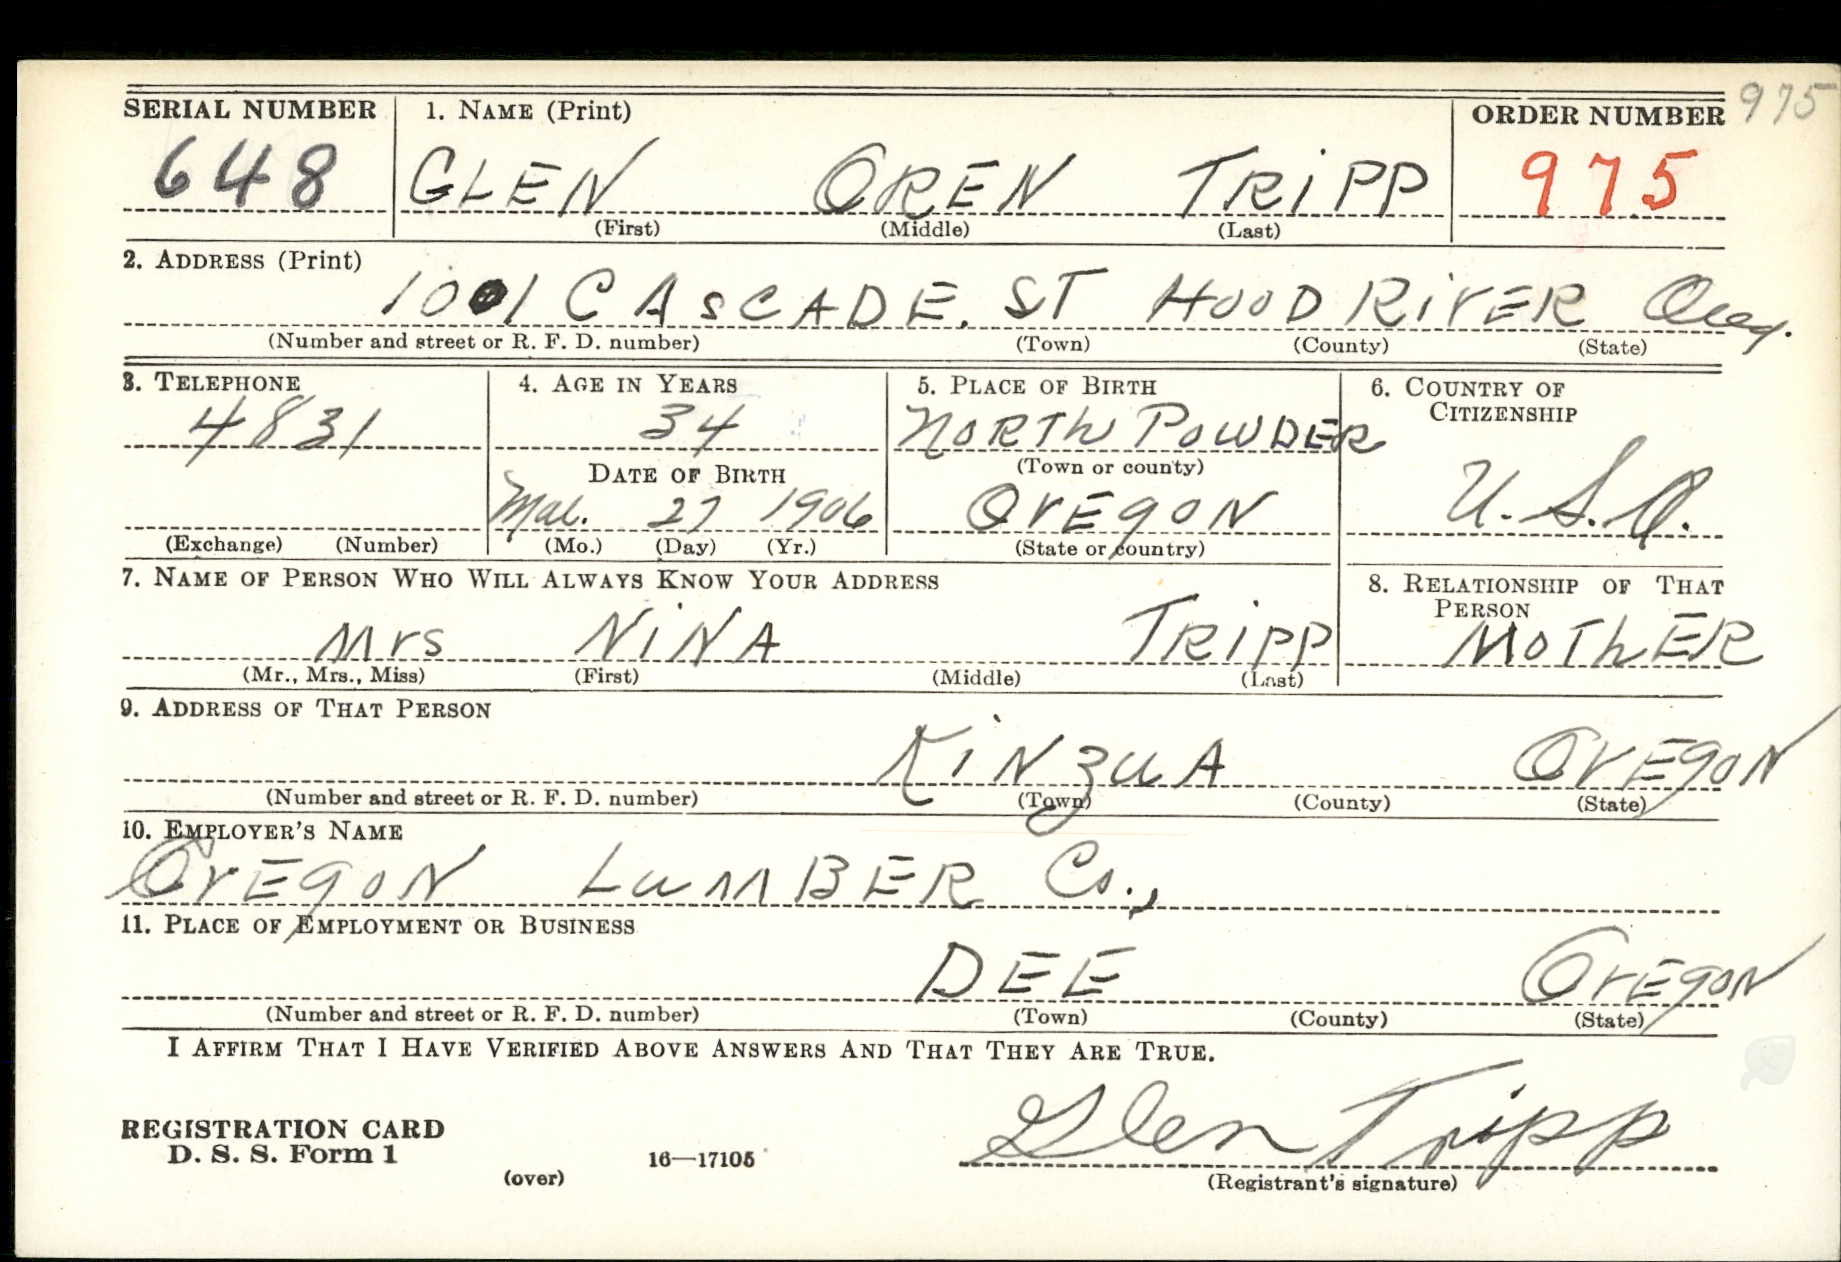 975
SERIAL NUMBER 1. NAME (Print) ORDER NUMBER
648 GLEN OREN TRiPP 975
(First) (Middle) (Last)
2. ADDRESS (Print)
1001 CASCADE. ST HOOD RiVER Oreg.
(Number and street or R. F. D. number) (Town) (County) (State)
3. TELEPHONE 4. AGE IN YEARS 5. PLACE OF BIRTH 6. COUNTRY OF CITIZENSHIP
4831 34 NORTh POWDER
(Town or county)
DATE OF BIRTH
Mar. 27 1906 OrEgoN U.S.A.
(Exchange) (Number) (Mo.) (Day) (Yr.) (State or country)
7. NAME OF PERSON WHO WILL ALWAYS KNOW YOUR ADDRESS 8. RELATIONSHIP OF THAT PERSON
Mrs NiNA TRiPP MOThER
(Mr., Mrs., Miss) (First) (Middle) (Last)
9. ADDRESS OF THAT PERSON
KiNzuA OrEgoN
(Number and street or R. F. D. number) (Town) (County) (State)
10. EMPLOYER'S NAME
OrEgoN LuMBER Co.,
11. PLACE OF EMPLOYMENT OR BUSINESS
DEE OrEgoN
(Number and street or R. F. D. number) (Town) (County) (State)
I AFFIRM THAT I HAVE VERIFIED ABOVE ANSWERS AND THAT THEY ARE TRUE.
Glen Tripp
REGISTRATION CARD
D. S. S. Form 1
(over) 16—17105 (Registrant's signature)